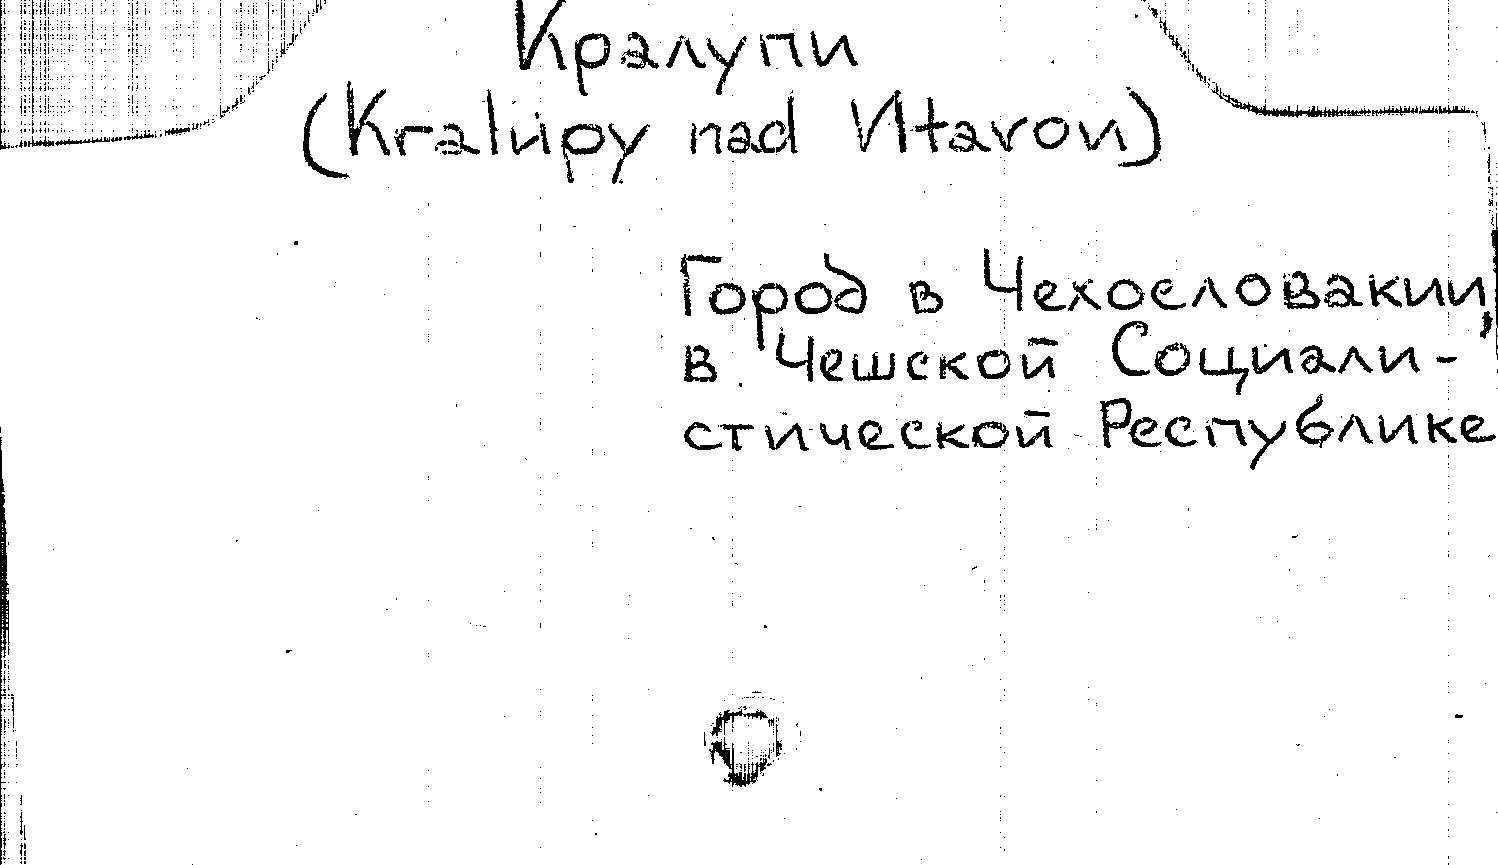 Кралупи
(Kralupy nad Vltavou)
Город в Чехословакии,
в Чешской Социали-
стической Республике